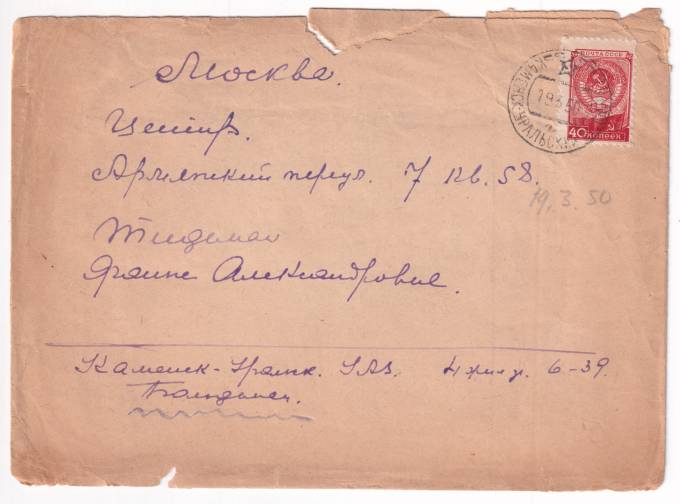 Москва.
Центр.
Армянский переул. 7 кв. 58.
Александровне.
Каменск-Уральск. УАЗ. 4 жил. у. 6-39.
19.3.50
ПОЧТА СССР
40 КОПЕЕК
КАМЕНСК-УРАЛЬСКИЙ
19 3 50